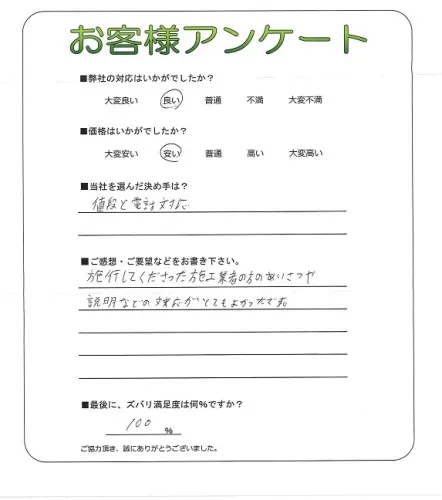 お客様アンケート
■弊社の対応はいかがでしたか？
大変良い 良い 普通 不満 大変不満
■価格はいかがでしたか？
大変安い 安い 普通 高い 大変高い
■当社を選んだ決め手は？
値段と電話対応
■ご感想・ご要望などをお書き下さい。
施行してくださった施工業者の方のあいさつや
説明などの対応がとてもよかったです。
■最後に、ズバリ満足度は何%ですか？
100 %
ご協力頂き、誠にありがとうございました。